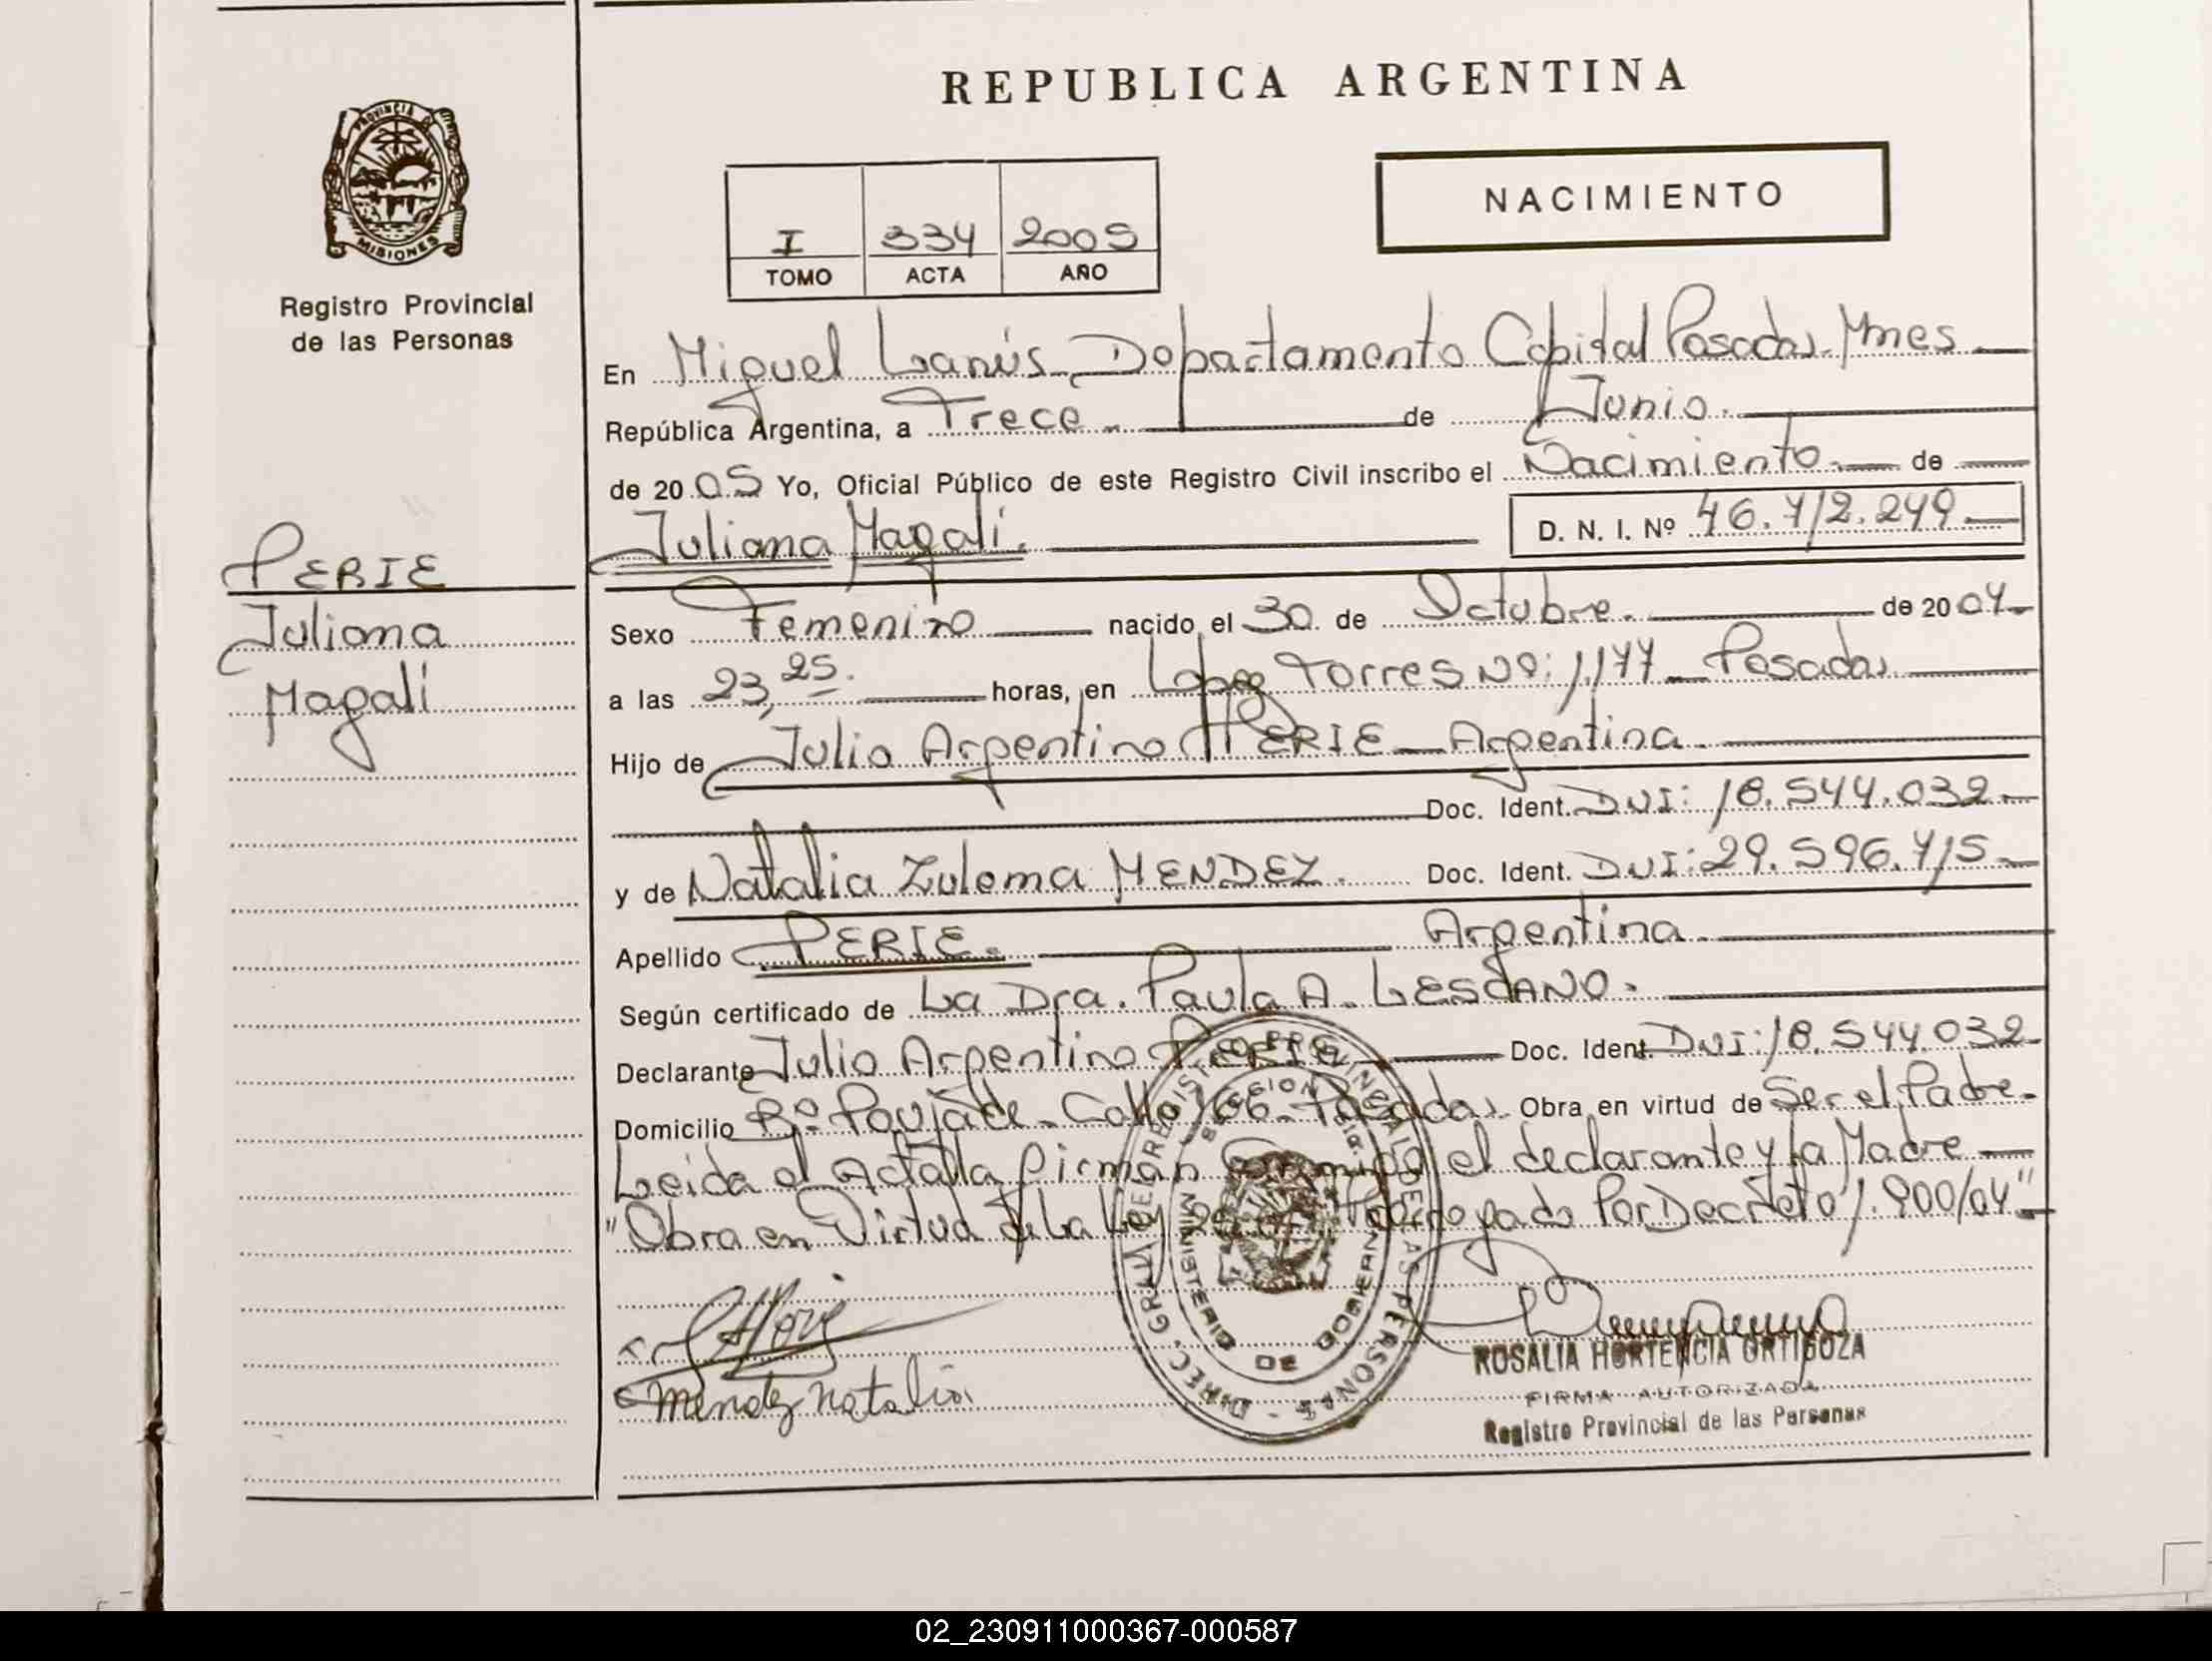 REPUBLICA ARGENTINA
PROVINCIA DE MISIONES
Registro Provincial
de las Personas
NACIMIENTO
I 334 2005
TOMO ACTA AÑO
En Miguel Lanús Departamento Capital Posadas Mnes
República Argentina, a Trece de Junio.
de 2005 Yo, Oficial Público de este Registro Civil inscribo el Nacimiento de
Juliana Magali. D. N. I. Nº 46.712.249
PERIE
Juliana
Magali
Sexo Femenino nacido el 30 de Octubre. de 2004
a las 23,25. horas, en López Torres Nº: 1.177 Posadas
Hijo de Julio Argentino PERIE Argentina
Doc. Ident. DNI: 18.544.032
y de Natalia Zulema MENDEZ. Doc. Ident. DNI: 29.596.715
Apellido PERIE. Argentina
Según certificado de La Dra. Paula A. LESCANO.
Declarante Julio Argentino PERIE Doc. Ident. DNI: 18.544.032
Domicilio Bº Poujade - Calle 166 - Posadas Obra en virtud de Ser el Padre.
Leida el Acta la firman Conmigo el declarante y la Madre
"Obra en Virtud de La Ley Prorrogado Por Decreto 1.900/04"
DIREC. GRAL. DEL REGISTRO PROVINCIAL DE LAS PERSONAS
MINISTERIO DE GOBIERNO
Mendez Natalia
ROSALIA HORTENCIA ORTIGOZA
FIRMA AUTORIZADA
Registro Provincial de las Personas
02_230911000367-000587